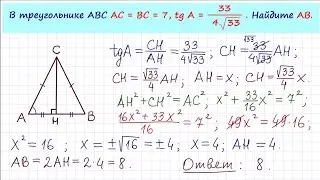 В треугольнике ABC AC = BC = 7, tg A = 33/4√33. Найдите AB.
C
A
H
B
tgA = CH/AH = 33/4√33; CH = √33 33/4√33 AH;
CH = √33/4 AH; CH = √33/4 x.
AH² + CH² = AC²; x² + 33/16 x² = 7²;
16x² + 33x²/16 = 7²; 49x² = 49·16;
x² = 16; x = ±√16 = ±4; x = 4; AH = 4.
AB = 2AH = 2·4 = 8. Ответ: 8.